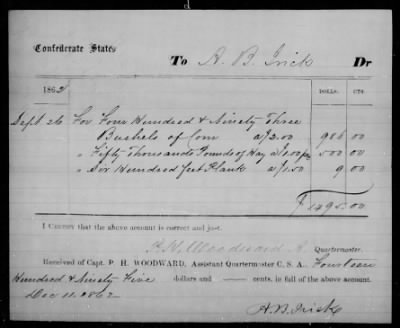 Confederate States
To A. B. Irick Dr
DOLLS. CTS.
1862
Sept 26 For Four Hundred & Ninety Three
Bushels of Corn a/2.00 986 00
" Fifty Thousands Pounds of Hay a/1.00 500 00
" Six Hundred feet Plank a/1.50 9 00
$1495.00
I CERTIFY that the above account is correct and just.
P. H. Woodward A. Quartermaster.
Received of Capt. P. H. WOODWARD, Assistant Quartermaster C. S. A., Fourteen
Hundred & Ninety Five dollars and — cents, in full of the above account.
Dec 11. 1862
A. B. Irick